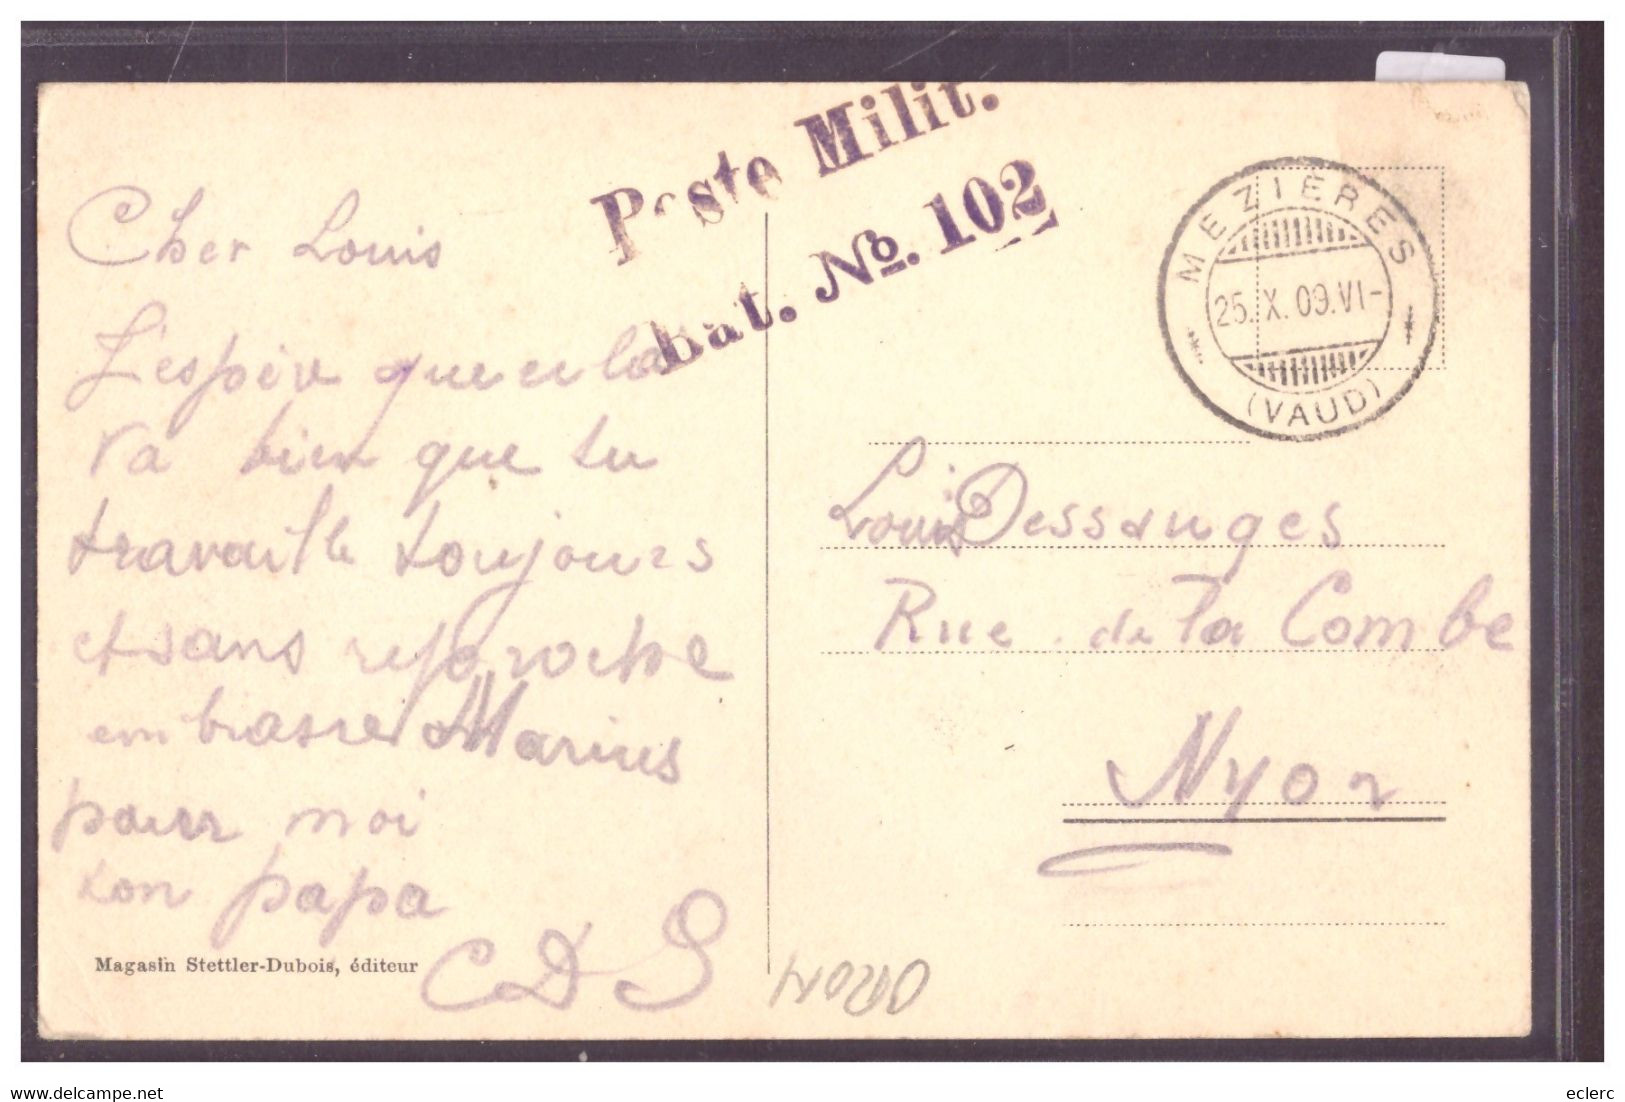 Poste Milit.
Bat. No. 102
MEZIERES
25. X. 09. VI-
(VAUD)
Cher Louis
J'espère que cela
va bien que tu
travaille toujours
et sans reproche
embrasse Marius
pour moi
ton papa
CDS
Magasin Stettler-Dubois, éditeur
Louis Dessauges
Rue de la Combe
Nyon
eclerc
www.delcampe.net